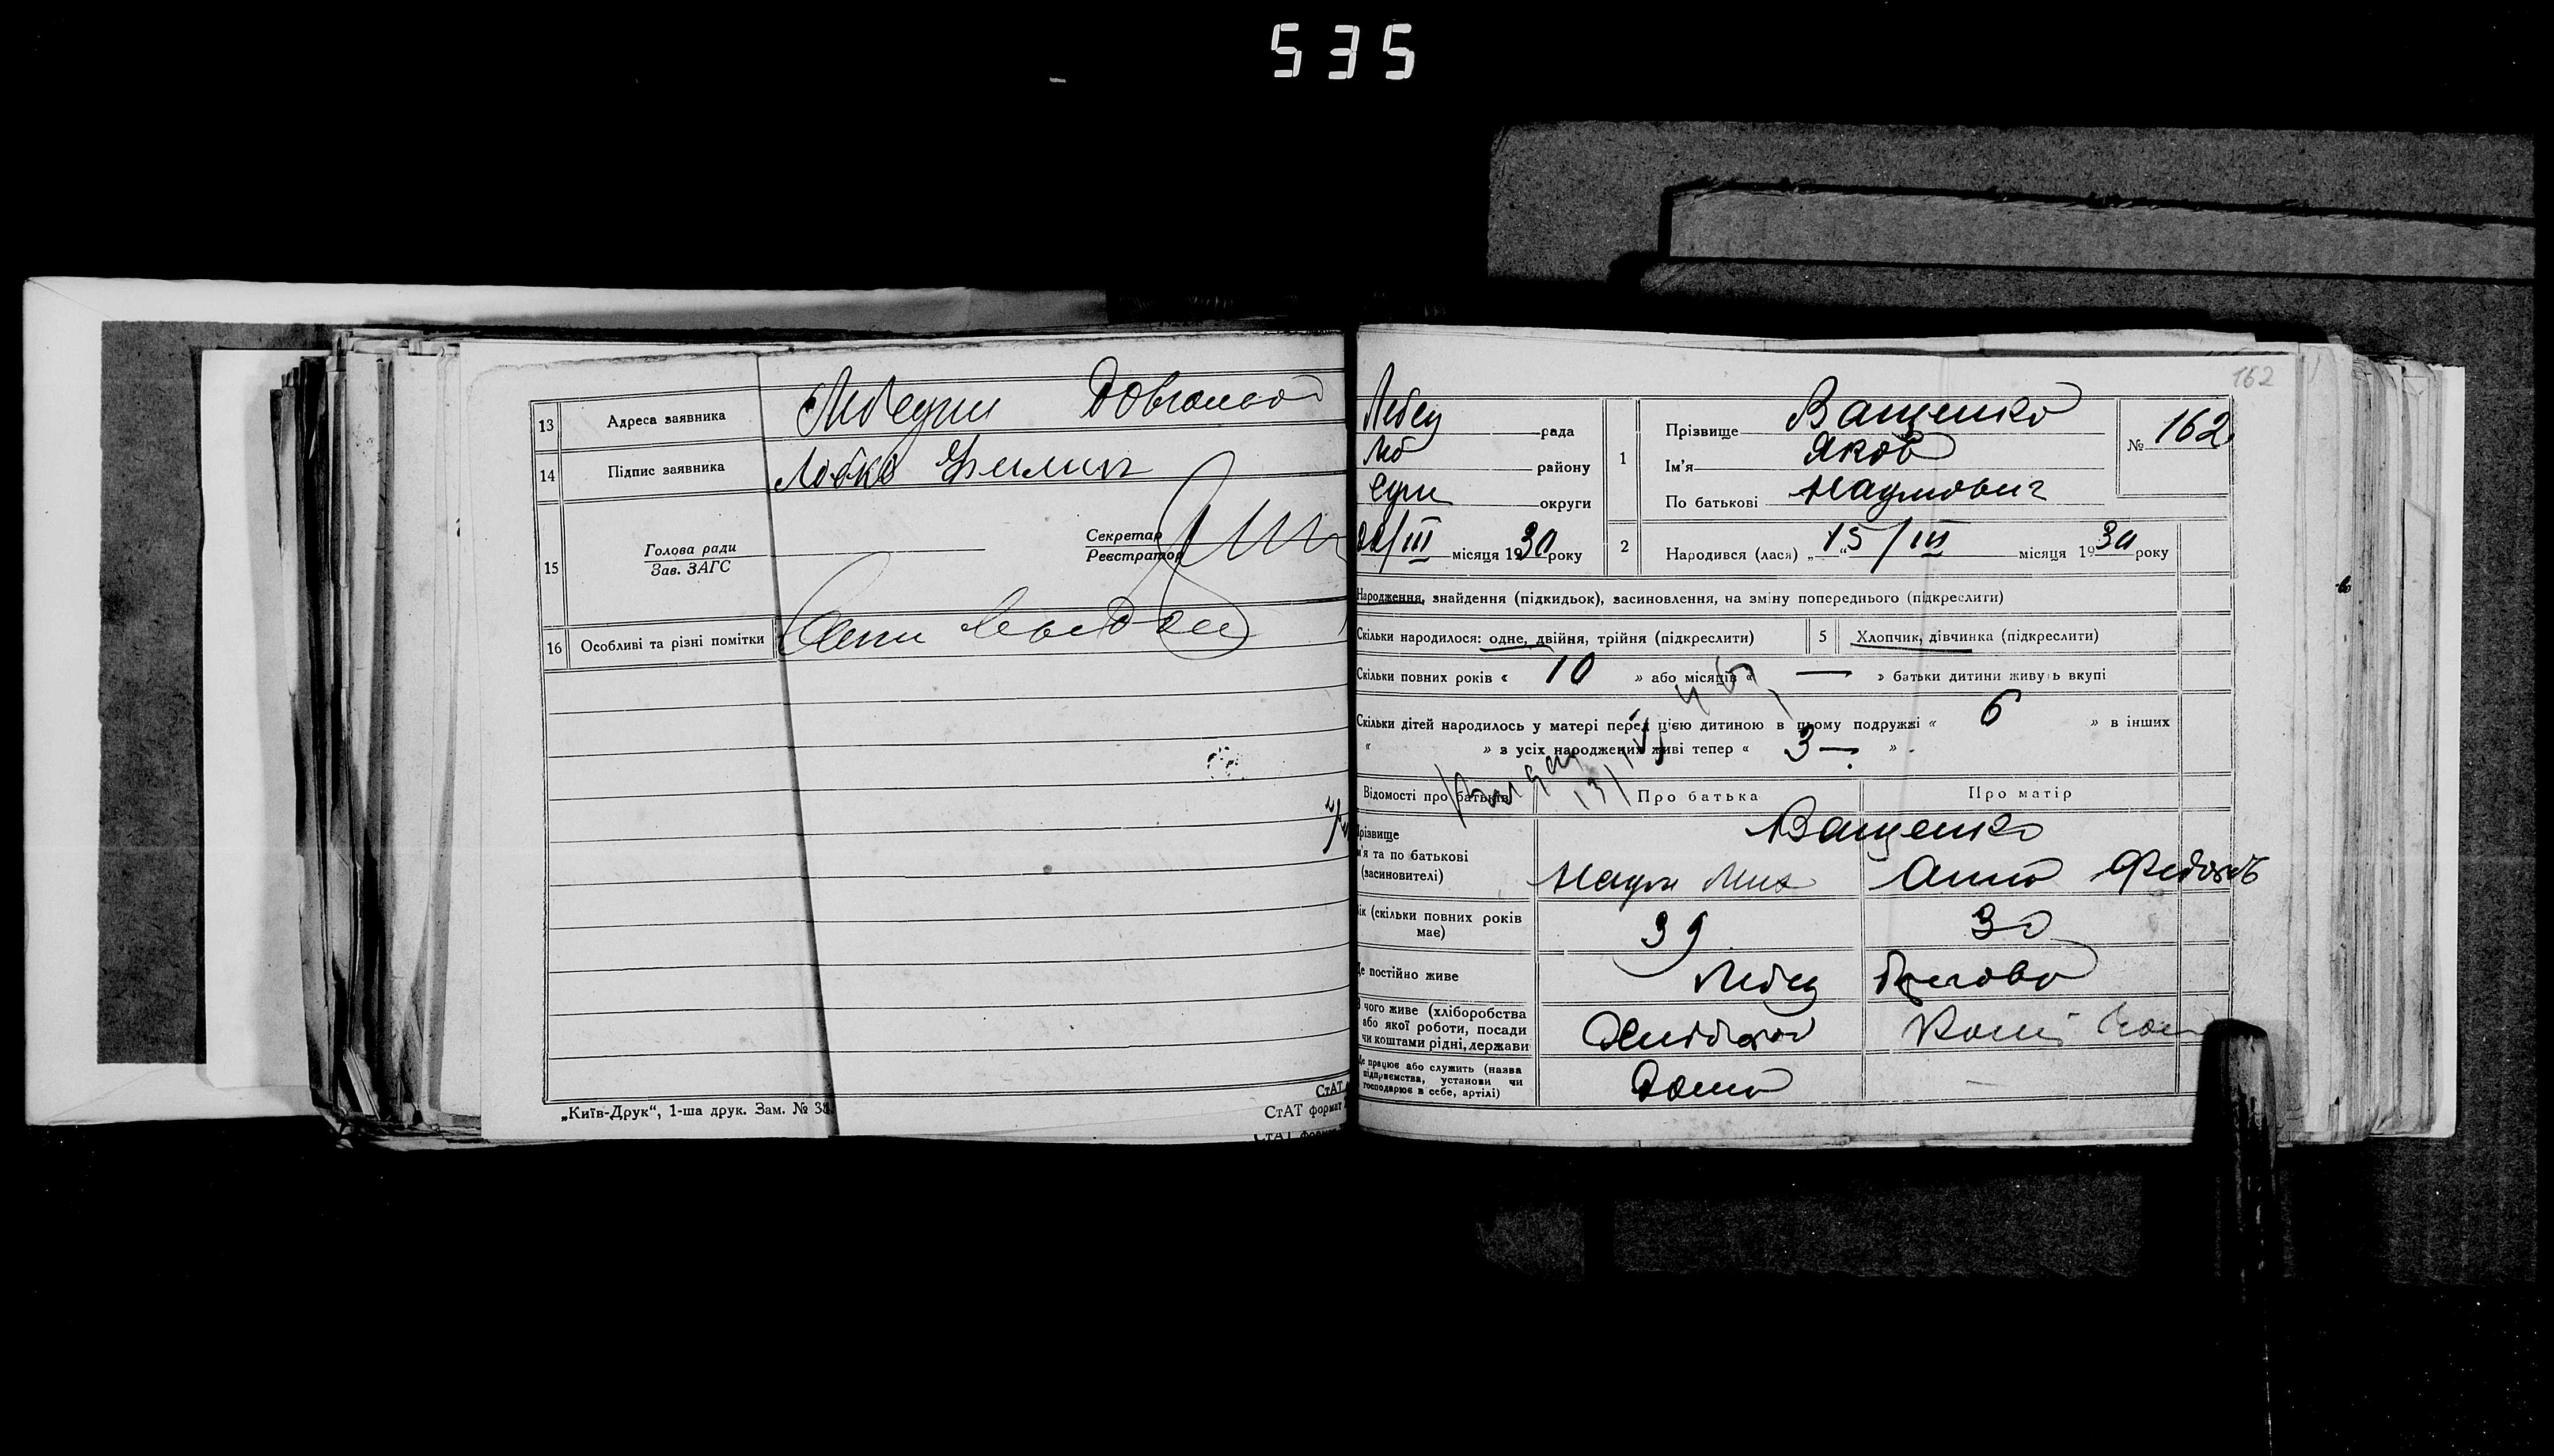 535
13 Адреса заявника Лебедин
14 Підпис заявника Лобко Филип
15 Голова ради
Зав. ЗАГС
Секретар
Реєстратор
16 Особливі та різні помітки
„Київ-Друк“, 1-ша друк. Зам. № 38
СтАТ
СтАТ формат
162
Лебед рада
Леб району
Сум округи
/III місяця 1930 року
1 Прізвище Ващенко
Ім'я Яков
По батькові Наумович
№ 162
2 Народився (лася) „15/III“ місяця 1930 року
Народження, знайдення (підкидьок), засиновлення, на зміну попереднього (підкреслити)
Скільки народилося: одне, двійня, трійня (підкреслити) 5 Хлопчик, дівчинка (підкреслити)
Скільки повних років « 10 » або місяців « — » батьки дитини живуть вкупі
Скільки дітей народилось у матері перед цією дитиною в цьому подружжі « 6 » в інших
« » з усіх народжених живі тепер « 3 — »
Відомості про батьків Про батька Про матір
різвище
м'я та по батькові
(засиновителі)
Ващенко
Наум Мих Анна
ік (скільки повних років має) 39 30
е постійно живе Лебед
чого живе (хліборобства
або якої роботи, посади
чи коштами рідні, держави
е працює або служить (назва
підприємства, установи чи
господарює в себе, артілі)
Дома —